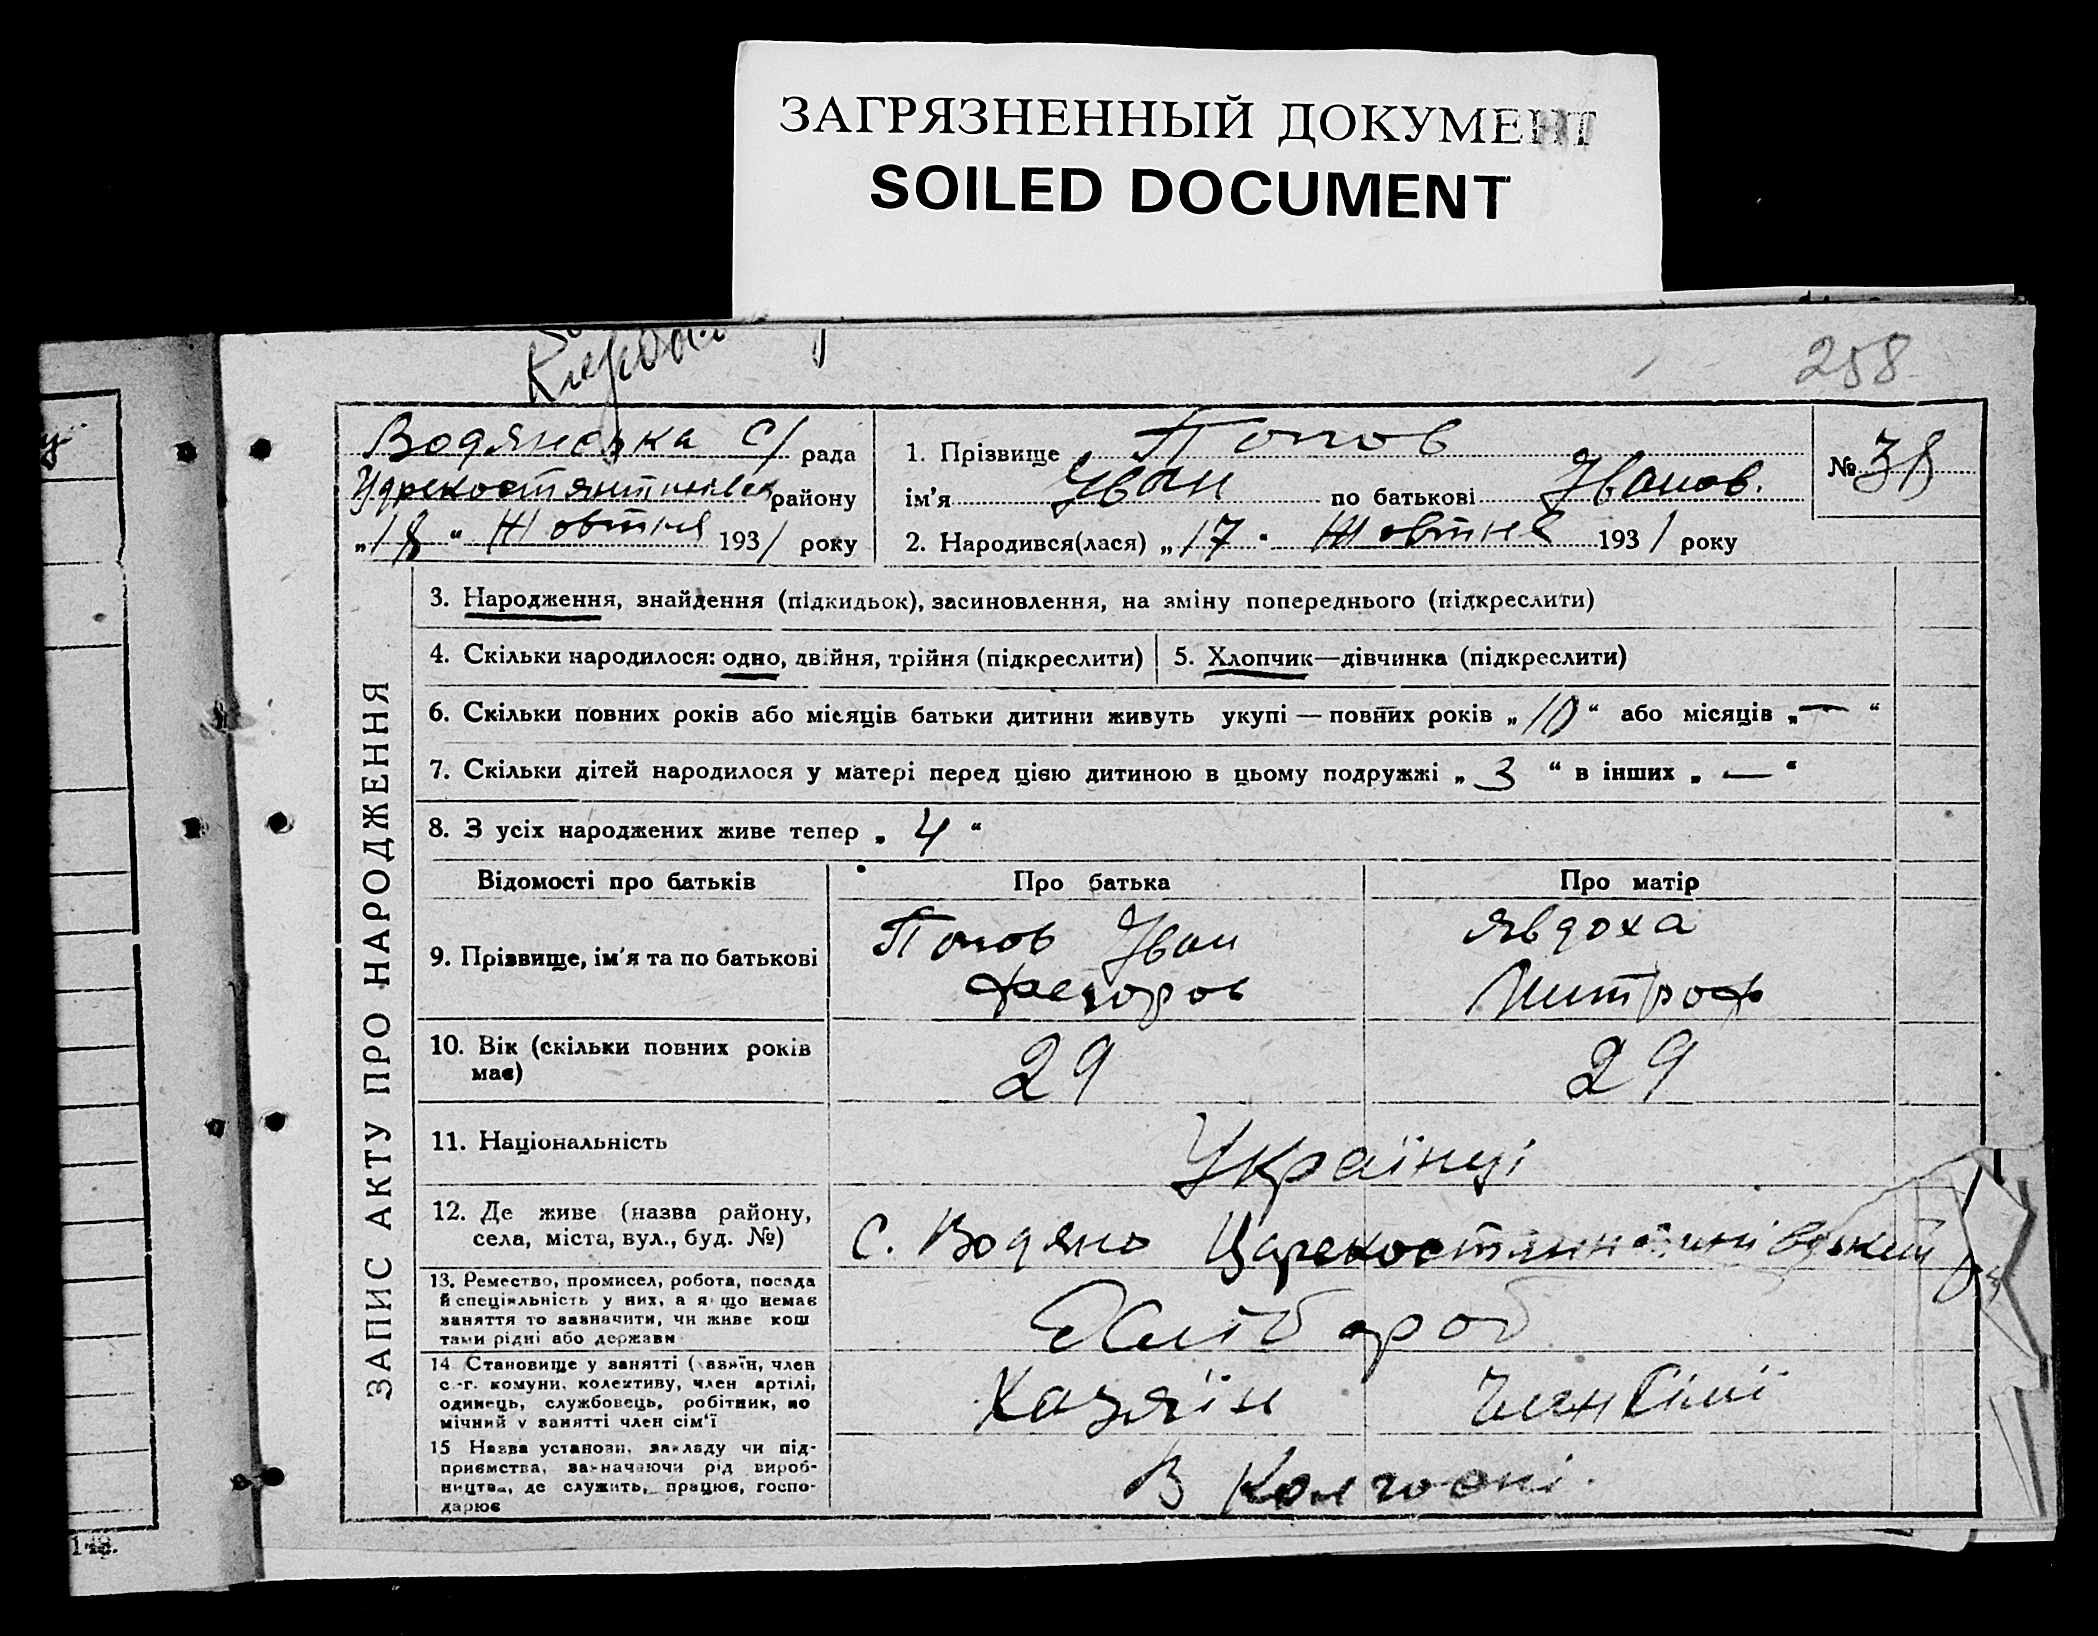 ЗАГРЯЗНЕННЫЙ ДОКУМЕНТ
SOILED DOCUMENT
258
Водяновка С/ рада
району
„18“ Жовтня 1931 року
1. Прізвище Попов
ім'я Іван по батькові Іванов.
№ 38
2. Народився(лася) „17“ Жовтня 1931 року
ЗАПИС АКТУ ПРО НАРОДЖЕННЯ
3. Народження, знайдення (підкидьок), засиновлення, на зміну попереднього (підкреслити)
4. Скільки народилося: одно, двійня, трійня (підкреслити)
5. Хлопчик—дівчинка (підкреслити)
6. Скільки повних років або місяців батьки дитини живуть укупі — повних років „10“ або місяців „—“
7. Скільки дітей народилося у матері перед цією дитиною в цьому подружжі „3“ в інших „—“
8. З усіх народжених живе тепер „4“
Відомості про батьків
Про батька
Про матір
9. Прізвище, ім'я та по батькові
Попов Іван
Фегоров
Явдоха
Митроф
10. Вік (скільки повних років
має)
29
29
11. Національність
Українці
12. Де живе (назва району,
села, міста, вул., буд. №)
С. Водяно
13. Ремество, промисел, робота, посада
й спеціяльність у них, а якщо немає
заняття то зазначити, чи живе кош
тами рідні або держави
Хлібороб
14 Становище у занятті (хазяїн, член
с.-г. комуни, колективу, член артілі,
одинець, службовець, робітник, по
мічний у занятті член сім'ї
Хазяїн
Член Сімї
15 Назва установи, закладу чи під-
приємства, зазначаючи рід вироб-
ництва, де служить, працює, госпо-
дарює
В Колгоспі.
148.